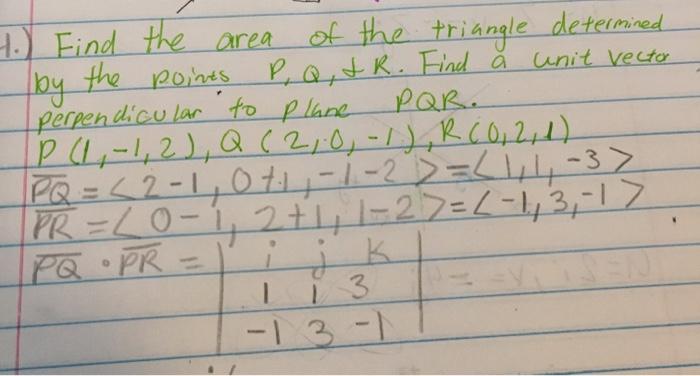 1.) Find the area of the triangle determined
by the points P, Q, & R. Find a unit vector
perpendicular to plane PQR.
P (1,-1,2), Q (2,0,-1), R (0,2,1)
PQ = <2-1, 0+1, -1-2> = <1,1,-3>
PR = <0-1, 2+1, 1-2> = <-1,3,-1>
PQ · PR = | i j k |
1 1 3
-1 3 -1